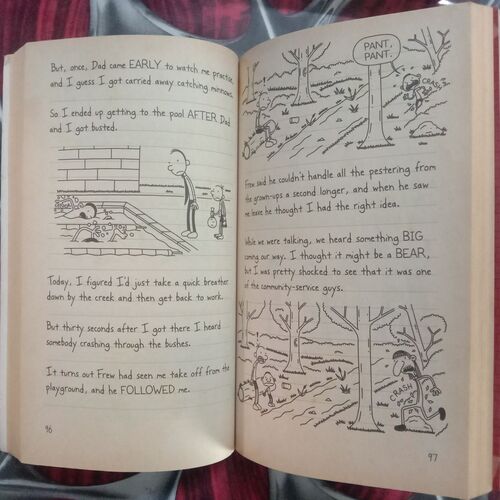 But, once, Dad came EARLY to watch me practice,
and I guess I got carried away catching minnows.
So I ended up getting to the pool AFTER Dad
and I got busted.
Today, I figured I'd just take a quick breather
down by the creek and then get back to work.
But thirty seconds after I got there I heard
somebody crashing through the bushes.
It turns out Frew had seen me take off from the
playground, and he FOLLOWED me.
96
PANT,
PANT.
CRASH
Frew said he couldn't handle all the pestering from
the grown-ups a second longer, and when he saw
me leave he thought I had the right idea.
While we were talking, we heard something BIG
coming our way. I thought it might be a BEAR,
but I was pretty shocked to see that it was one
of the community-service guys.
CRASH
97